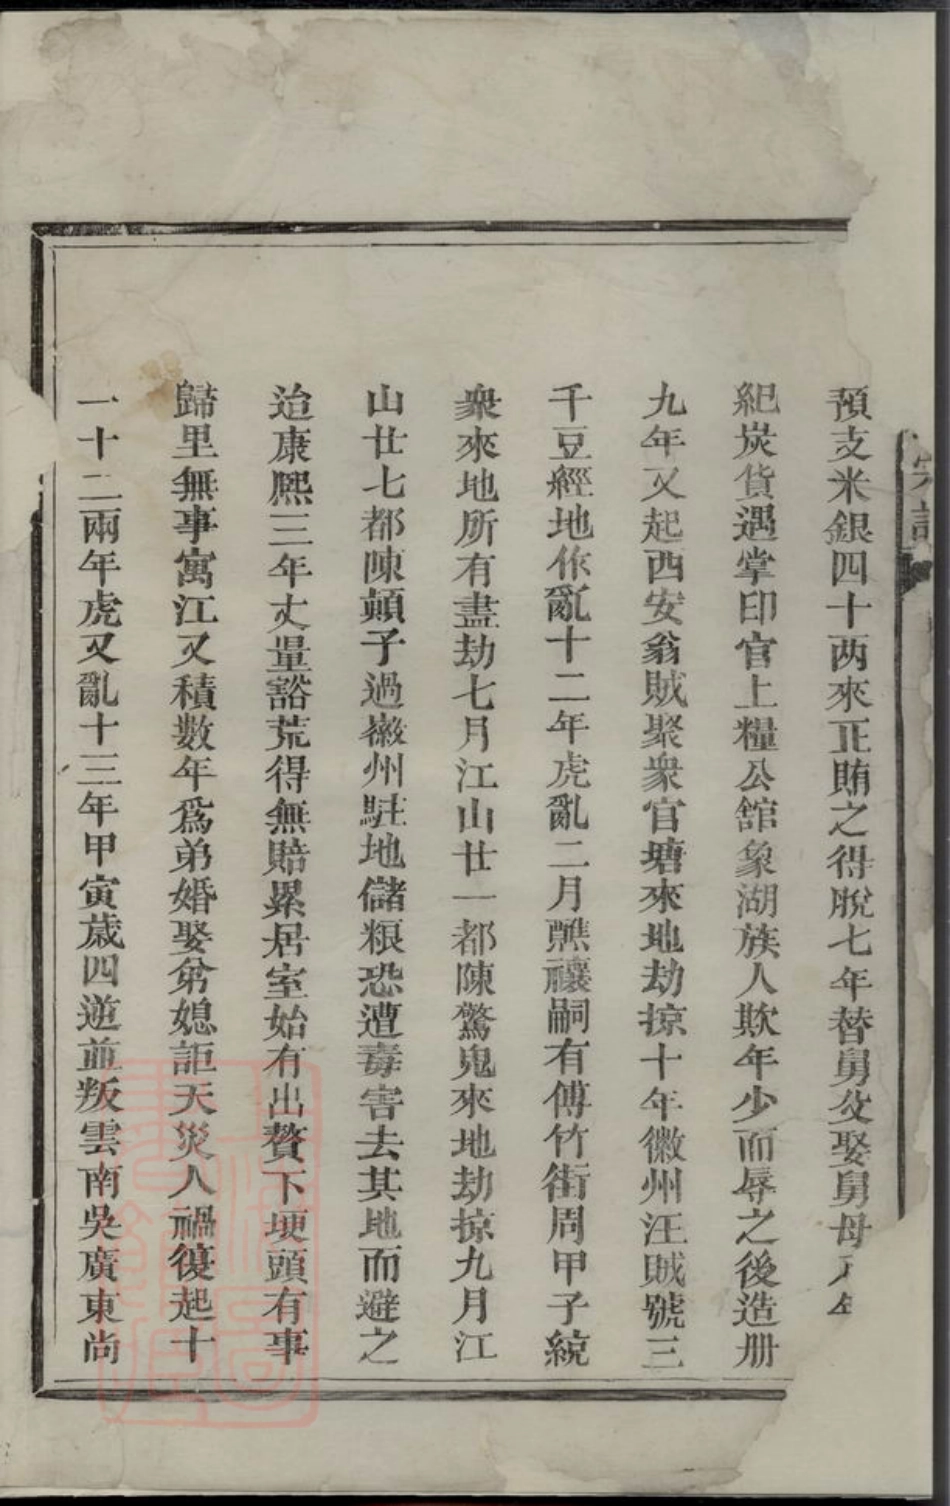 預支米銀四十两來正賄之得脫七年替舅父娶舅母八年
紀炭貨遇掌印官上糧公舘象湖族人欺年少而辱之後造册
九年又起西安翁賊聚衆官塘來地劫掠十年徽州汪賊號三
千豆經地作亂十二年虎亂二月醮禳嗣有傅竹街周甲子統
衆來地所有盡劫七月江山廿一都陳驚鬼來地劫掠九月江
山廿七都陳顛子過徽州駐地儲粮恐遭毒害去其地而避之
治康熙三年丈量豁荒得無賠累居室始有出贅下埂頭有事
歸里無事寓江又積數年爲弟婚娶弟媳詎天災人禍復起十
一十二兩年虎又亂十三年甲寅歲四逆並叛雲南吳廣東尚